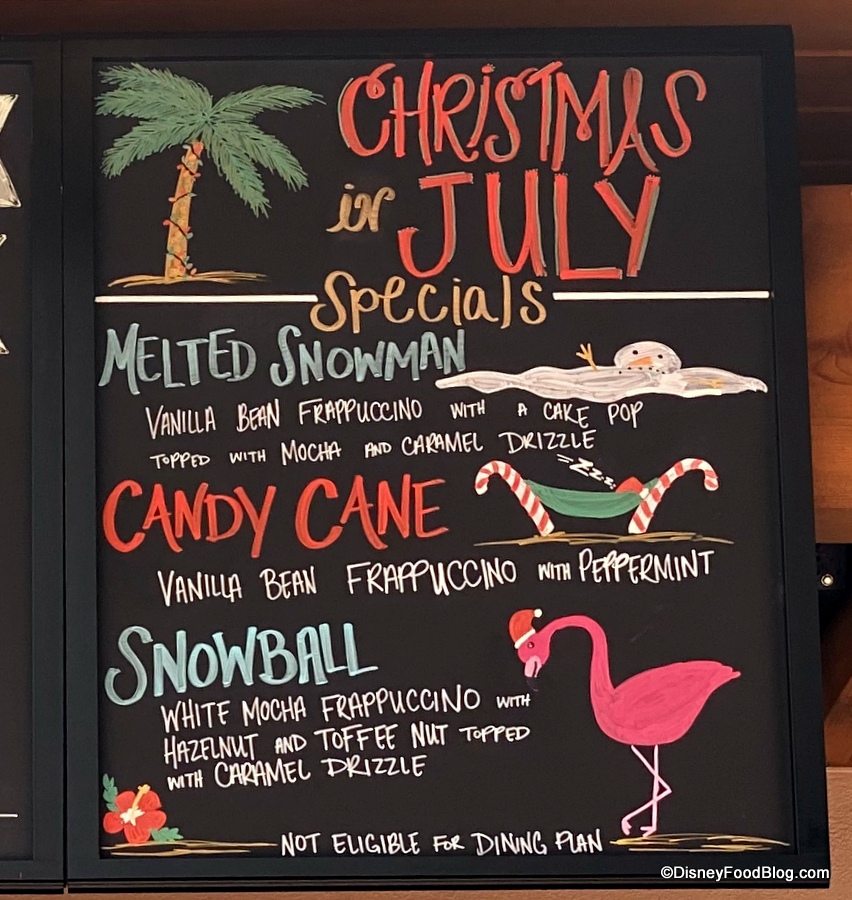 CHRiSTMAS
in JULY
Specials
MELTED SNOWMAN
VANILLA BEAN FRAPPUCCINO WITH A CAKE POP
TOPPED WITH MOCHA AND CARAMEL DRIZZLE
ZZZ...
CANDY CANE
VANILLA BEAN FRAPPUCCINO WITH PEPPERMINT
SNOWBALL
WHITE MOCHA FRAPPUCCINO WITH
HAZELNUT AND TOFFEE NUT TOPPED
WITH CARAMEL DRIZZLE
NOT ELIGIBLE FOR DINING PLAN
©DisneyFoodBlog.com